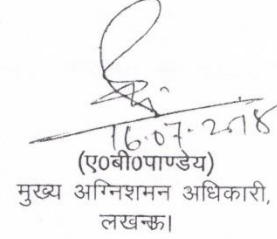 16.07.2018
(ए0बी0पाण्डेय)
मुख्य अग्निशमन अधिकारी,
लखनऊ।